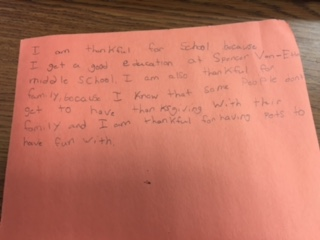 I am thankful for school because
I get a good education at Spencer Van-Etten
middle school. I am also thankful for
family, because I know that some people dont
get to have thanksgiving with thier
family and I am thankful for having pets to
have fun with.